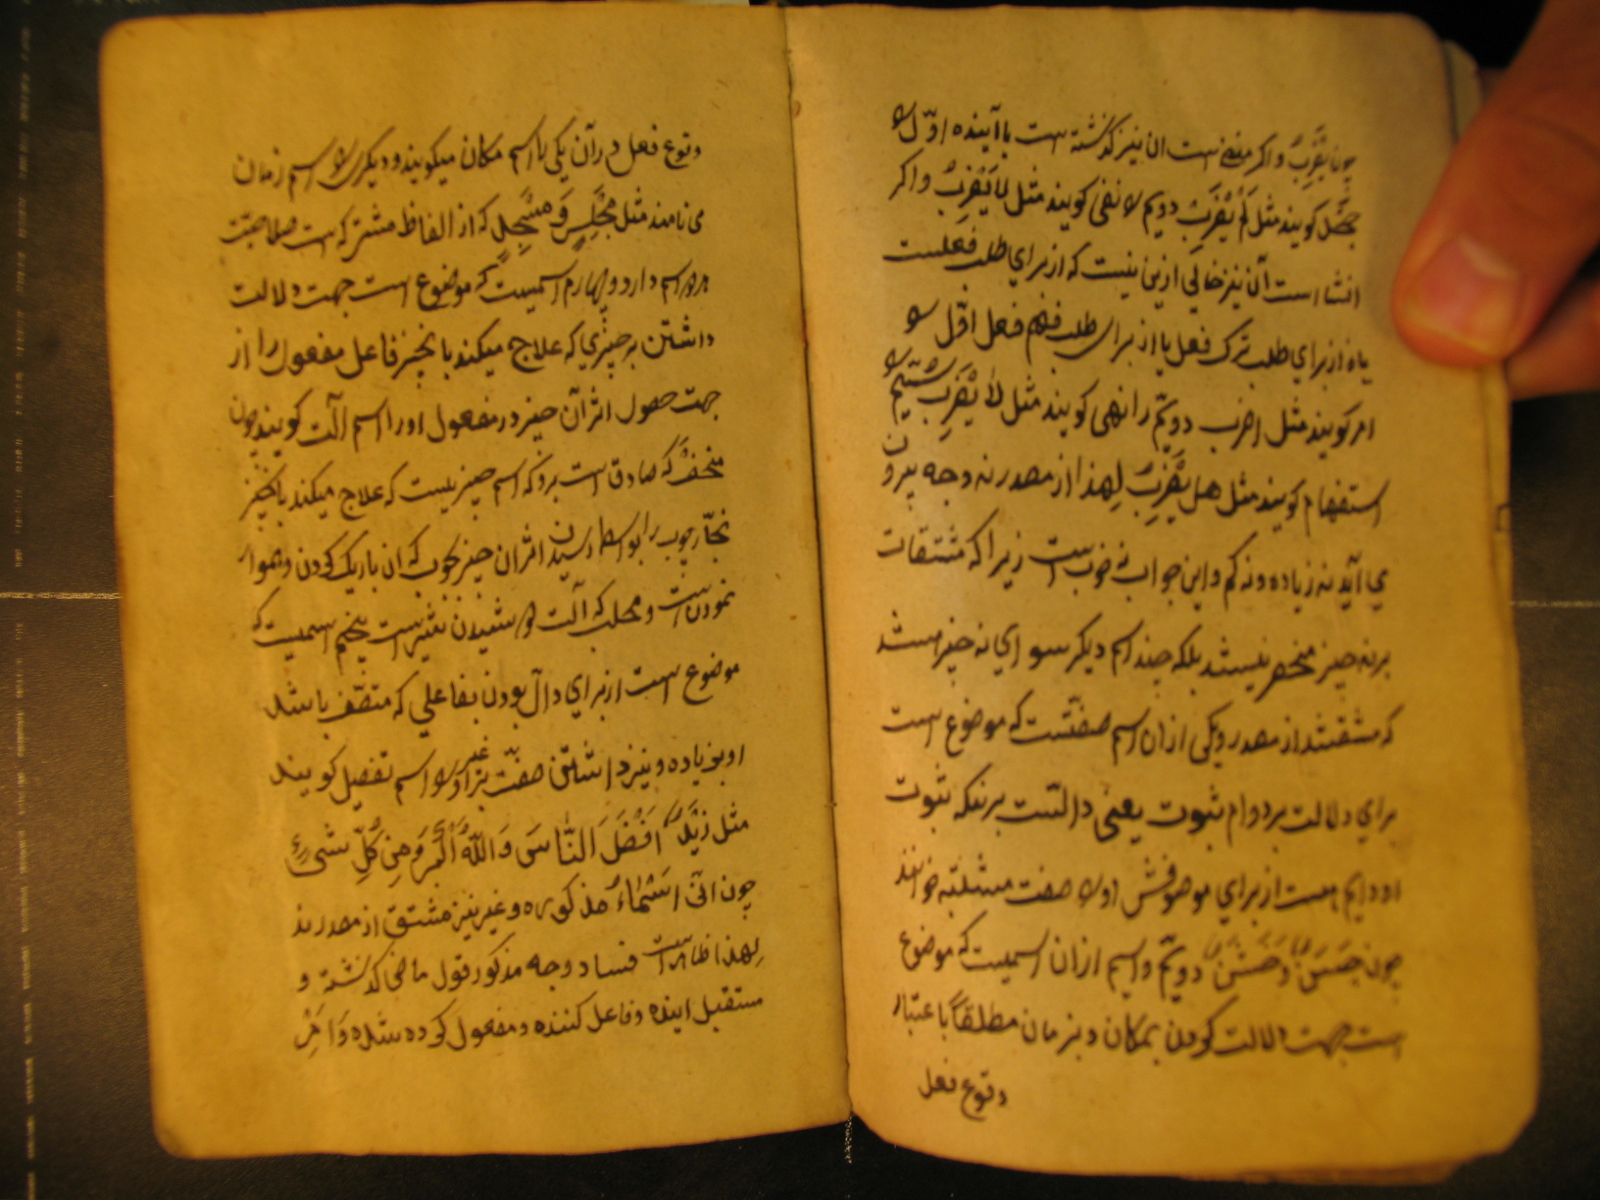 چون یَضْرِبُ و اکر منفی است ان نیز کذشته است یا آینده اوّل را
جحد کویند مثل لَمْ یَضْرِبْ دویم را نفی کویند مثل لا یَضْرِبُ و اکر
انشا است آن نیز خالی ازین نیست که از برای طلب فعلست
یا از برای طلب ترک فعل یا از برای طلب فهم فعل اوّل را
امر کویند مثل اضرب دویّم را نهی کویند مثل لا یَضْرِبْ سیّیم را
استفهام کویند مثل هل یَضْرِبُ لهذا از مصدر نه وجه بیرون
می آید نه زیاده و نه کم و این جواب نه خوب است زیرا که مشتقات
بر نه چیز منحصر نیستند بلکه چند اسم دیکر سوای نه چیز هستند
که مشتقند از مصدر و یکی از ان اسم صفتست که موضوع است
برای دلالت بر دوام ثبوت یعنی دالّست برینکه ثبوت
او دایم هست از برای موصوفش او را صفت مشبّهه خوانند
چون حَسَنٌ و خَشِنٌ دویّم و اسیم ازان اسمیست که موضوع
است جهت دلالت کردن بمکان و بزمان مطلقاً باعتبار
وقوع فعل
وقوع فعل در آن یکی را اسم مکان میکویند و دیکری را اسم زمان
می نامند مثل مَجْلِسٍ وَ مَسْجِدٍ که از الفاظ مشترکه است صلاحیّت
هر دو اسم دارد و چهارم اسمیست که موضوع است جهت دلالت
داشتن به چیزی که علاج میکند بانچیز فاعل مفعول را از
جهت حصول اثر آن چیز در مفعول او را اسم آلت کویند چون
منحف که صادق است برو که اسم چیزیست که علاج میکند بانچیز
نجّار چوب را بواسطه رسیدن اثر ان چیز بچوب که ان باریک کردن و هموار
نمودن است و محلب که آلت دوشیدن شیر است پنجم اسمیست که
موضوع است از برای دالّ بودن بفاعلی که متصّف باشد
او بزیاده و نیز داشتن صفت بر غیر او را اسم تفضیل کویند
مثل زَیْدٌ اَفْضَلَ النّاسَ وَ اللّهُ اَکْبَرُ وَ مِنْ کُلِّ شَیْءٍ
چون اتی اَسْمٰاءُ مذکوره و غیر نیز مشتق از مصدرند
لهذا ظاهر است فساد وجه مذکور قول ماضی کذشته و
مستقبل اینده و فاعل کننده و مفعول کرده شده وَ امر